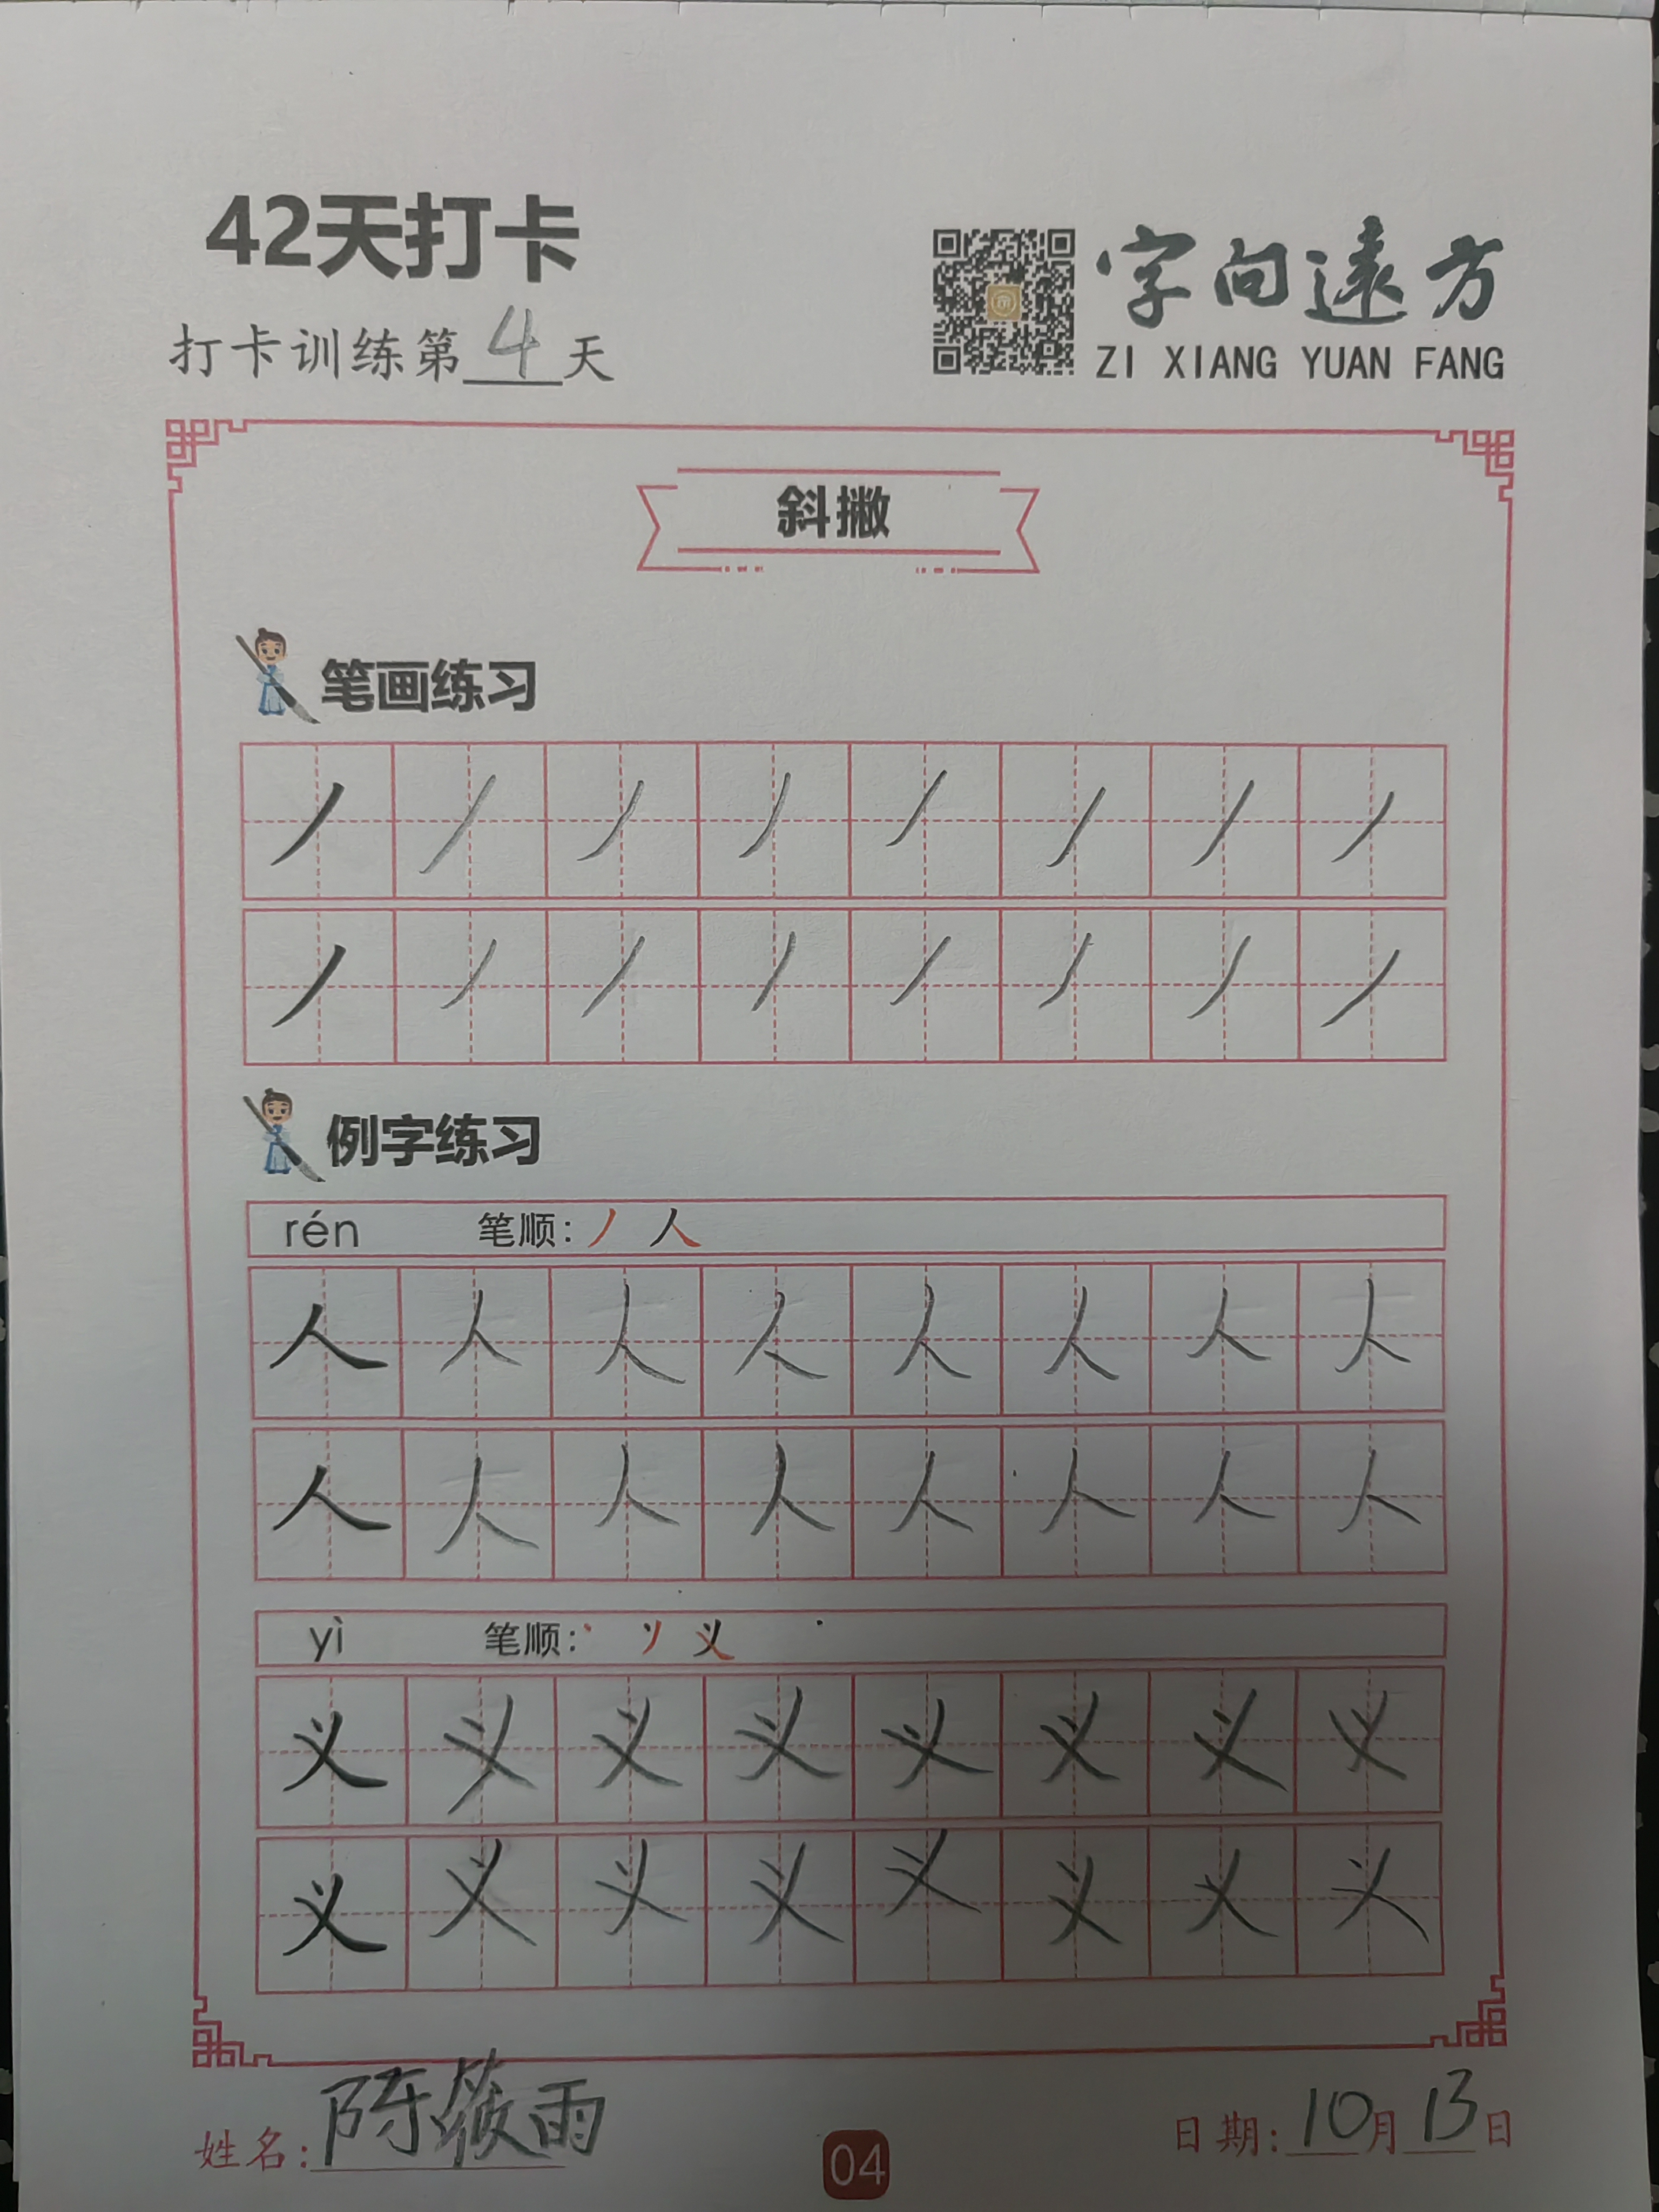 42天打卡
打卡训练第4天
字向遠方
ZI XIANG YUAN FANG
斜撇
笔画练习
丿 丿 丿 丿 丿 丿 丿 丿
丿 丿 丿 丿 丿 丿 丿 丿
例字练习
rén 笔顺: 丿 人
人 人 人 人 人 人 人 人
人 人 人 人 人 人 人 人
yì 笔顺: 丶 丷 义
义 义 义 义 义 义 义 义
义 义 义 义 义 义 义 义
姓名: 陈筱雨
04
日期: 10月13日